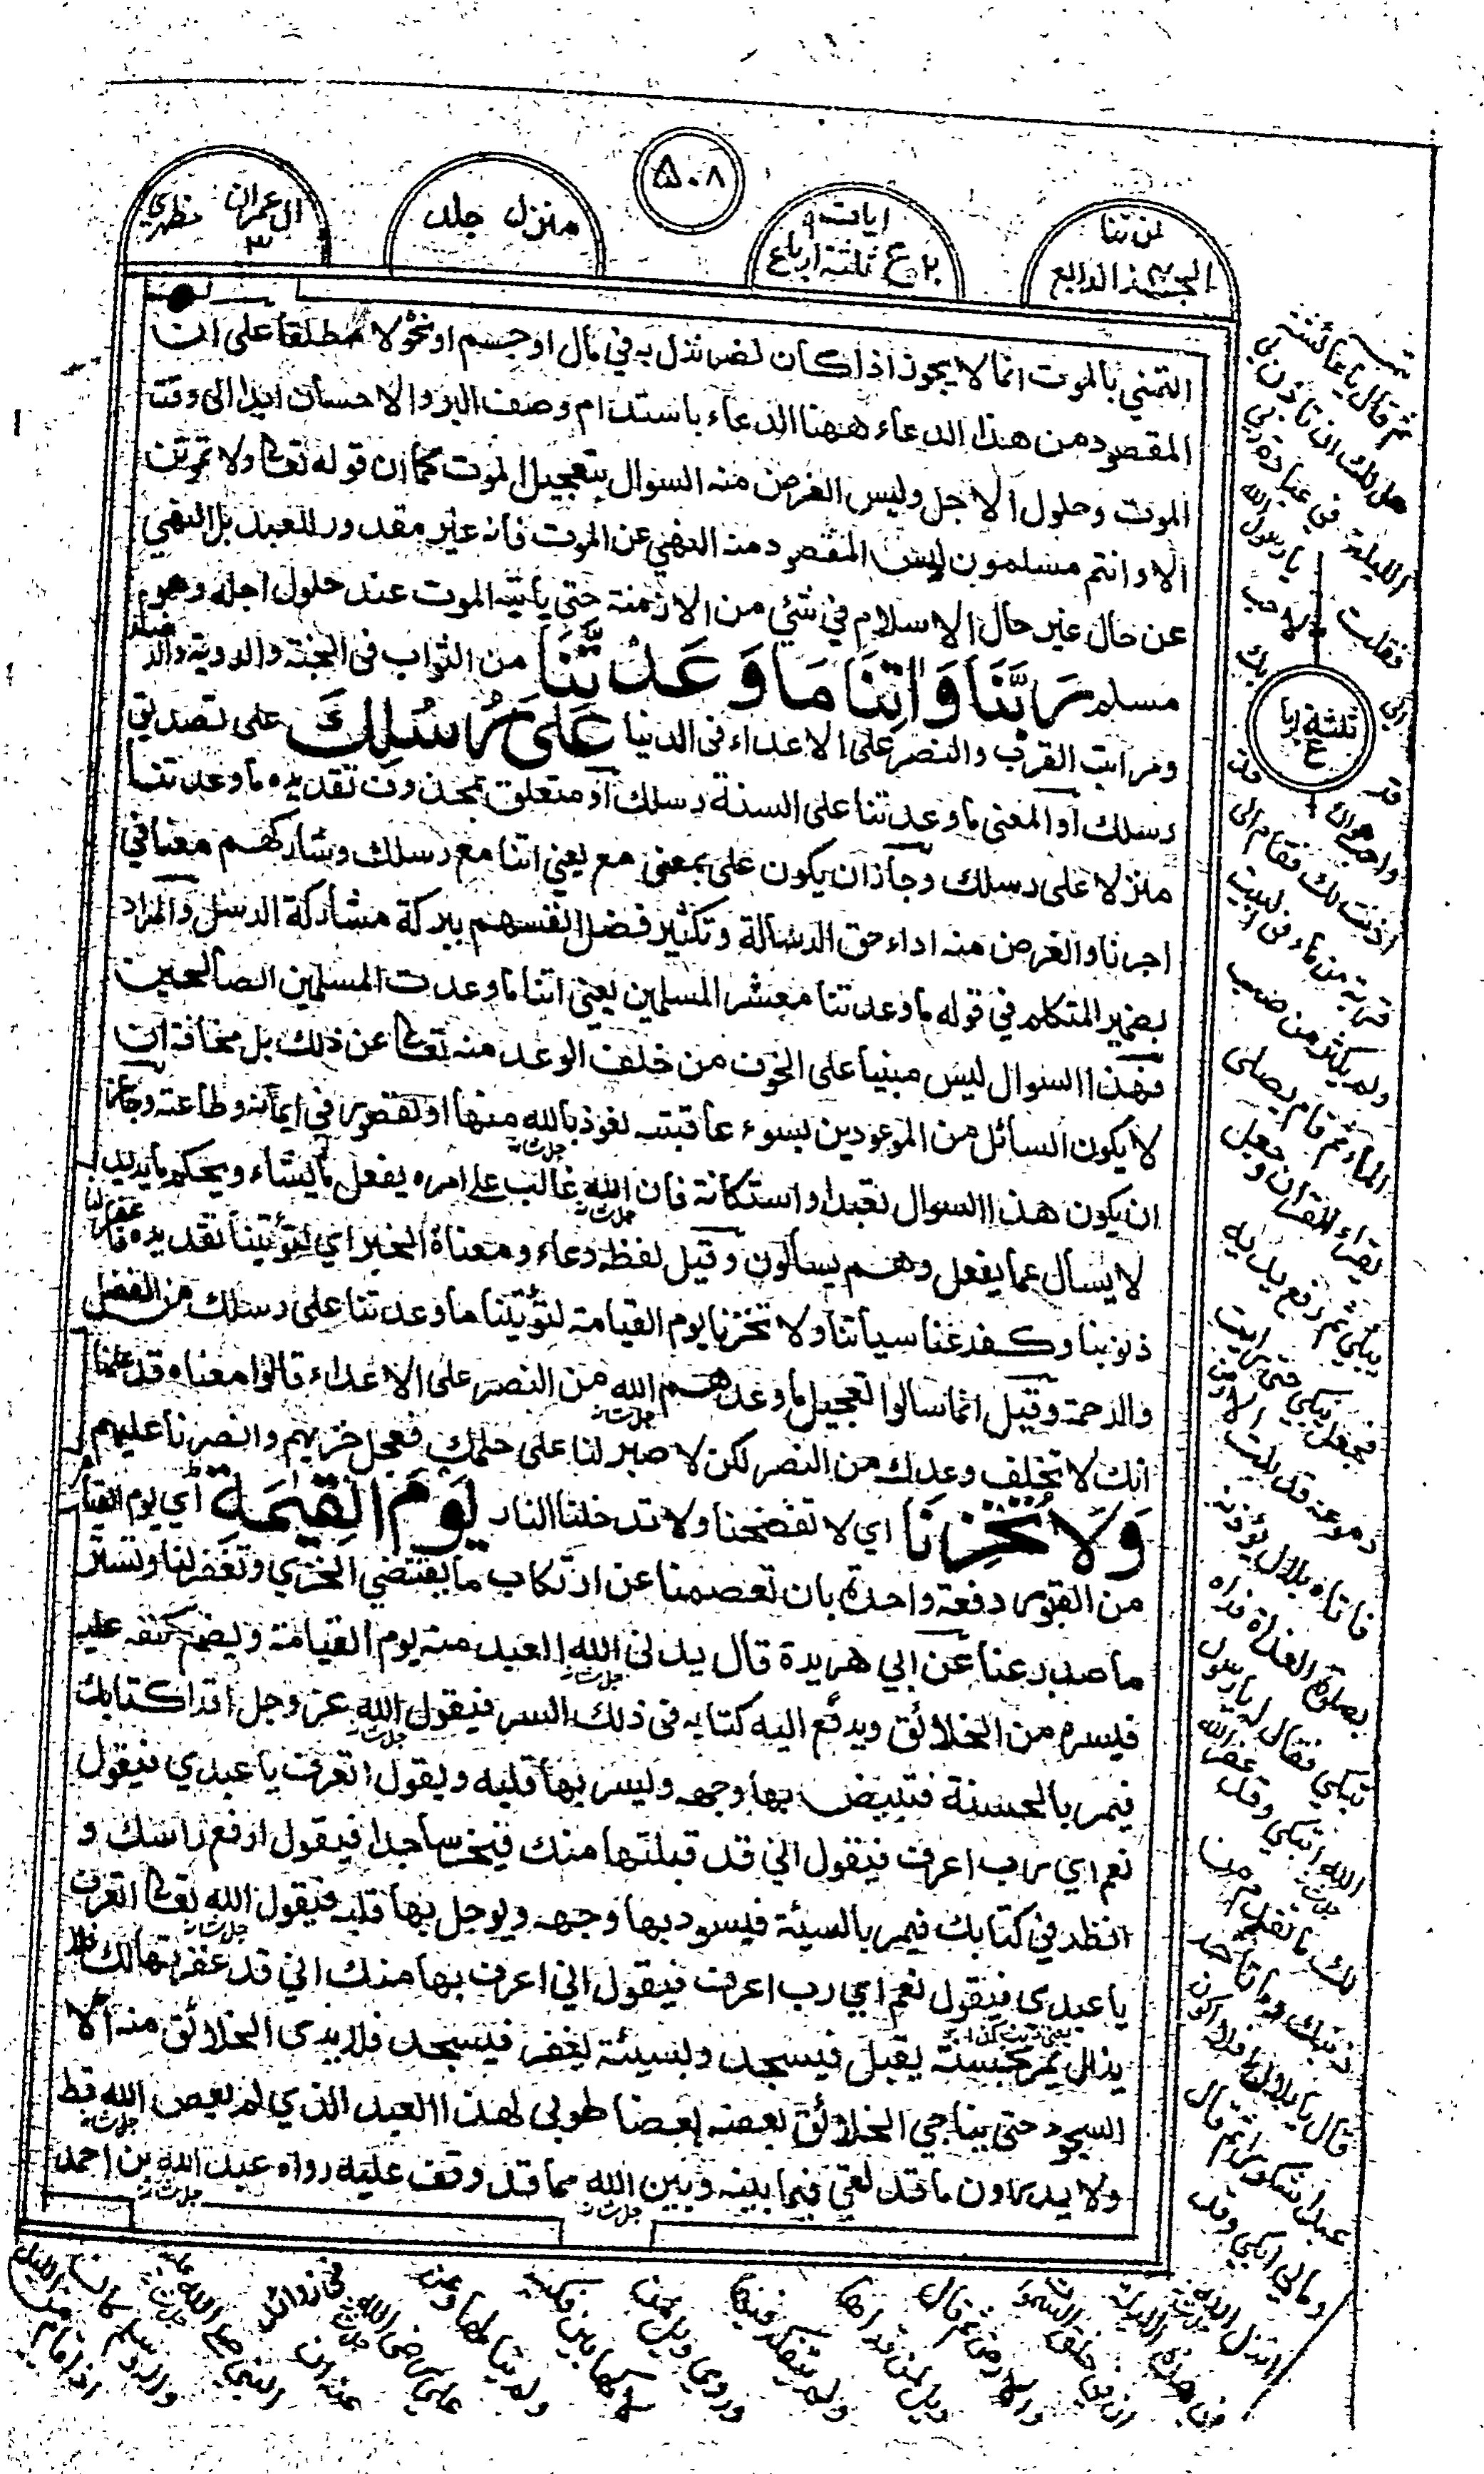 لن تنا
الجزء الرابع
ثلثة ارباع
۵۰۸
منزل جلد
ال عمران
۳
مظهري
التمني بالموت انما لا يجوز اذا كان لضر نزل به في مال او جسم او نحوه لا مطلقا على ان
المقصود من هذا الدعاء ههنا الدعاء باستدام وصف البر والاحسان ابدا الى وقت
الموت وحلول الاجل وليس الغرض منه السوال بتعجيل الموت كما ان قوله تعالى ولا تموتن
الا وانتم مسلمون ليس المقصود منه النهي عن الموت فانه غير مقدور للعبد بل النهي
عن حال غير حال الاسلام في شئ من الازمنة حتى ياتيه الموت عند حلول اجله وهو
مسلم رَبَّنَا وَاٰتِنَا مَا وَعَدْتَّنَا من الثواب في الجنة والروية والرضاء
ومراتب القرب والنصر على الاعداء في الدنيا عَلٰى رُسُلِكَ على تصديق
رسلك او المعنى ما وعدتنا على السنة رسلك او متعلق بمحذوف تقديره ما وعدتنا
منزلا على رسلك وجاز ان يكون على بمعنى مع يعني اتنا مع رسلك وشاركهم معنا في
اجرنا والغرض منه اداء حق الرسالة وتكثير فضل انفسهم ببركة مشاركة الرسل والمراد
بضمير المتكلم في قوله ما وعدتنا معشر المسلمين يعني اتنا ما وعدت المسلمين الصالحين
فهذا السوال ليس مبنيا على الخوف من خلف الوعد منه تعالى عن ذلك بل مخافة ان
لا يكون السائل من الموعودين بسوء عاقبته نعوذ بالله منها او لقصور في ايمانه وطاعته وجاز
ان يكون هذا السوال تعبدا واستكانة فان الله غالب على امره يفعل ما يشاء ويحكم ما يريد
لا يسال عما يفعل وهم يسالون وقيل لفظه دعاء ومعناه الخبر اي لتؤتينا تقديره فاغفر لنا
ذنوبنا وكفر عنا سياتنا ولا تخزنا يوم القيامة لتؤتينا ما وعدتنا على رسلك من الفضل
والرحمة وقيل انما سالوا تعجيل ما وعدهم الله من النصر على الاعداء قالوا معناه قد علمنا
انك لا تخلف وعدك من النصر لكن لا صبر لنا على حلمك فعجل خزيهم وانصرنا عليهم
وَلَا تُخْزِنَا اي لا تفضحنا ولا تدخلنا النار يَوْمَ الْقِيٰمَةِ اي يوم القيام
من القبور دفعة واحدة بان تعصمنا عن ارتكاب ما يقتضي الخزي وتغفر لنا وتستر
ما صدر عنا عن ابي هريرة قال يدني الله العبد منه يوم القيامة ويضع كنفه عليه
فيستره من الخلائق ويدفع اليه كتابه في ذلك الستر فيقول الله عز وجل اقرا كتابك
فيمر بالحسنة فتبيض بها وجهه وليسر بها قلبه ويقول اتعرف يا عبدي فيقول
نعم اي رب اعرف فيقول اني قد قبلتها منك فيخر ساجدا فيقول ارفع راسك و
انظر في كتابك فيمر بالسيئة فيسود بها وجهه ويوجل بها قلبه فيقول الله تعالى اتعرف
يا عبدي فيقول نعم اي رب اعرف فيقول اني اعرف بها منك اني قد غفرتها لك فلا
يزال يمر بحسنة يقبل فيسجد ولسيئة يغفر فيسجد فلا يرى الخلائق منه الا
السجود حتى يناجي الخلائق بعضه بعضا طوبى لهذا العبد الذي لم يعص الله قط
ولا يدرون ما قد لقي فيما بينه وبين الله مما قد وقف عليه رواه عبد الله بن احمد
ثم قال يا عائشة
هل لك ان تاذن لي
الليلة في عبادة ربي
فقلت يا رسول الله
اني لاحب
قربك
واحب هواك قد
اذنت لك فقام الى
قربة من ماء في البيت
ولم يكثر من صب
الماء ثم قام يصلي
يقراء القران وجعل
يبكي ثم رفع يديه
فجعل يبكي حتى رايت
دموعه قد بلت الارض
فاتاه بلال يؤذنه
بصلوة الغداة فراه
يبكي فقال له يا رسول
الله اتبكي وقد غفر الله
لك ما تقدم من
ذنبك وما تاخر
قال يا بلال افلا اكون
عبدا شكورا ثم قال
ومالي لا ابكي وقد
انزل الله